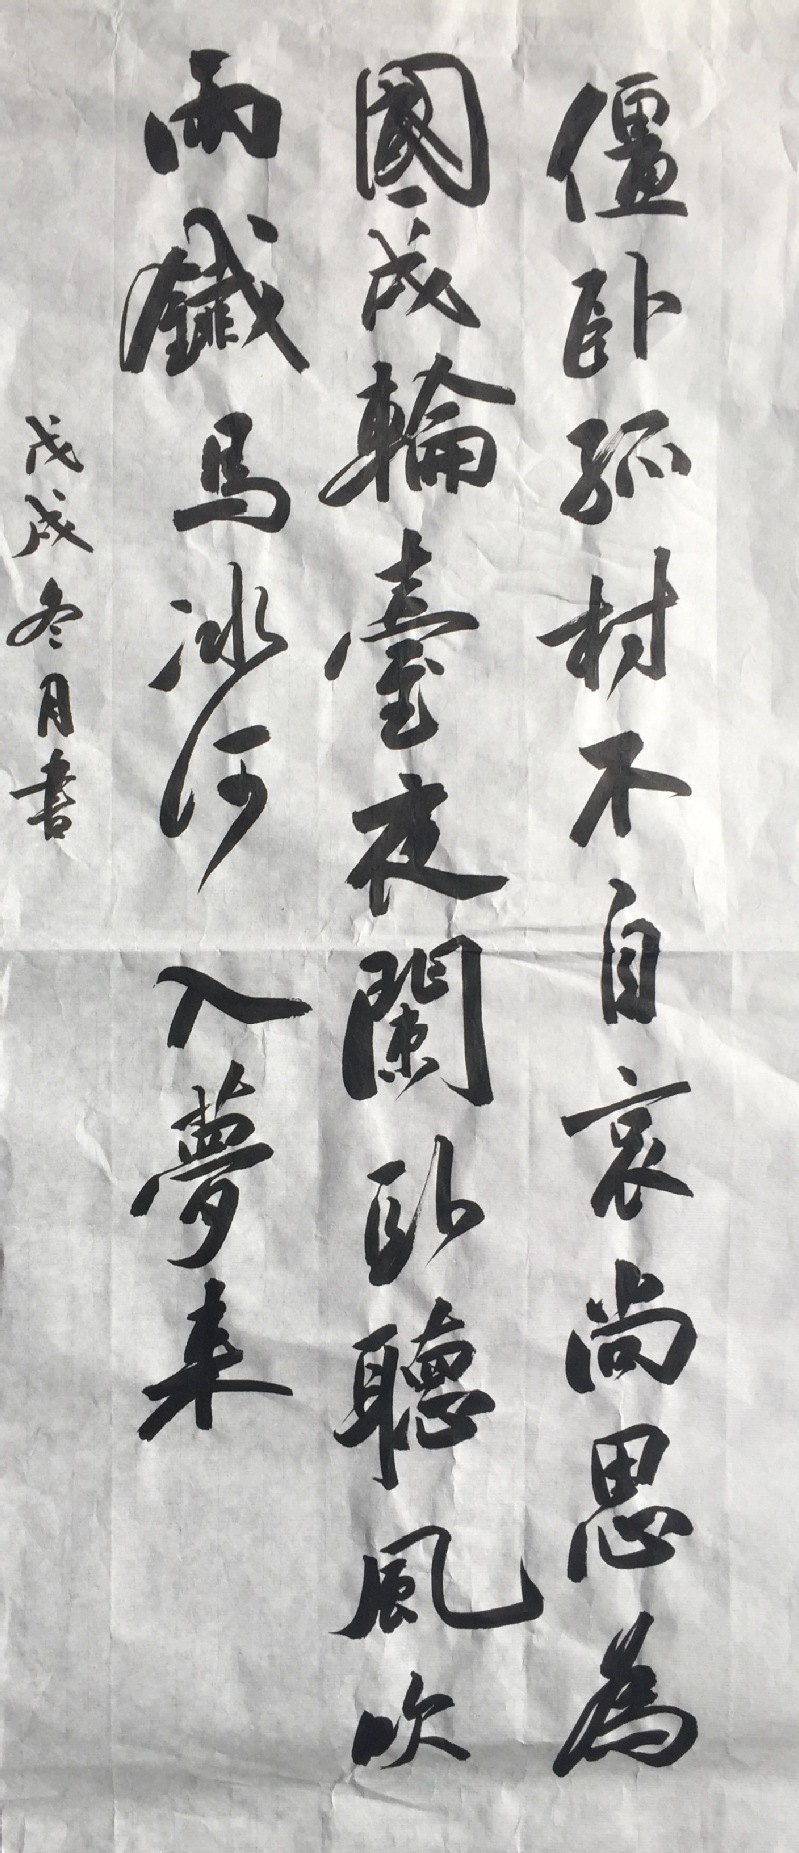 僵卧孤村不自哀尚思為
國戍輪臺夜闌卧聽風吹
雨鐵馬冰河入夢来
戊戌冬月書